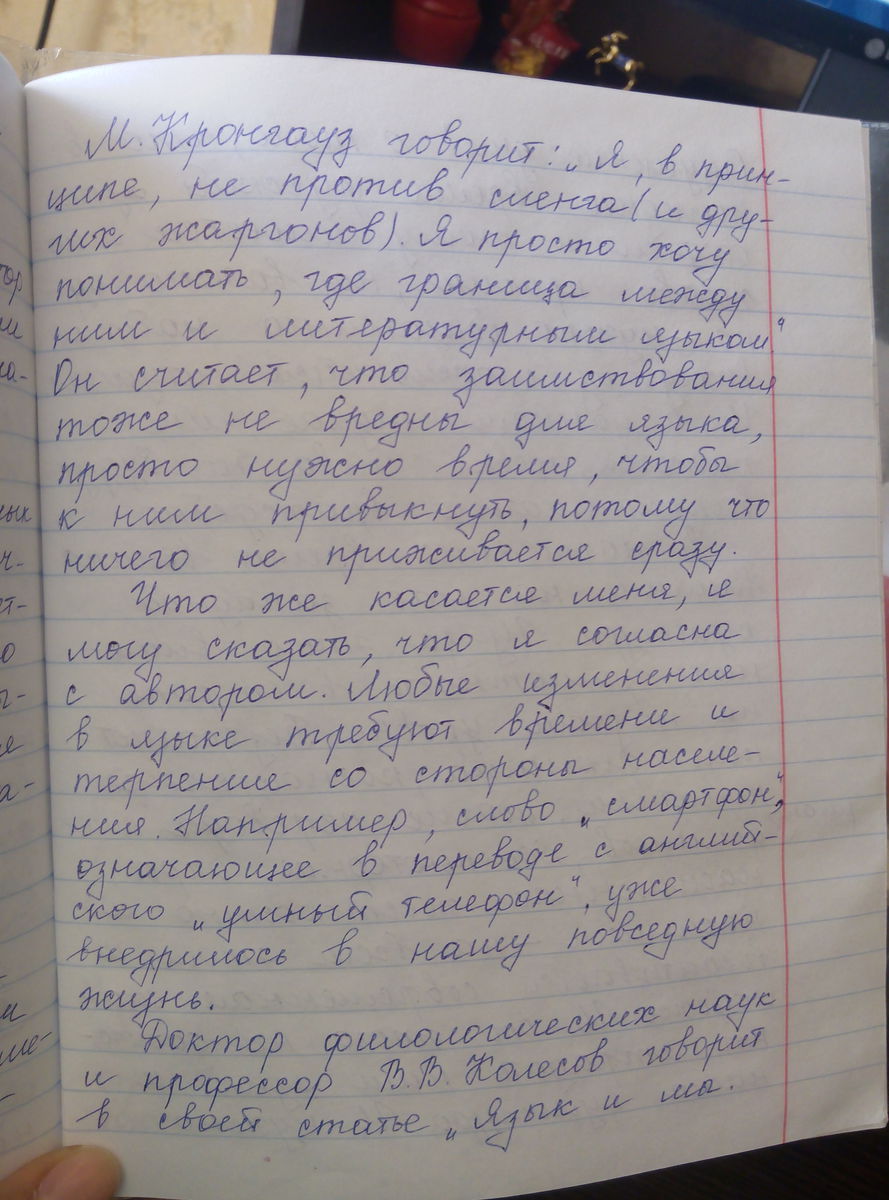 М. Кронгауз говорит: „Я, в прин-
ципе, не против сленга (и дру-
гих жаргонов). Я просто хочу
понимать, где граница между
ним и литературным языком“.
Он считает, что заимствования
тоже не вредны для языка,
просто нужно время, чтобы
к ним привыкнуть, потому что
ничего не приживается сразу.
Что же касается меня, я
могу сказать, что я согласна
с автором. Любые изменения
в языке требуют времени и
терпение со стороны населе-
ния. Например, слово „смартфон“,
означающее в переводе с англий-
ского „умный телефон“, уже
внедрилось в нашу повседную
жизнь.
Доктор филологических наук
и профессор В.В. Колесов говорит
в своей статье „Язык и мы.